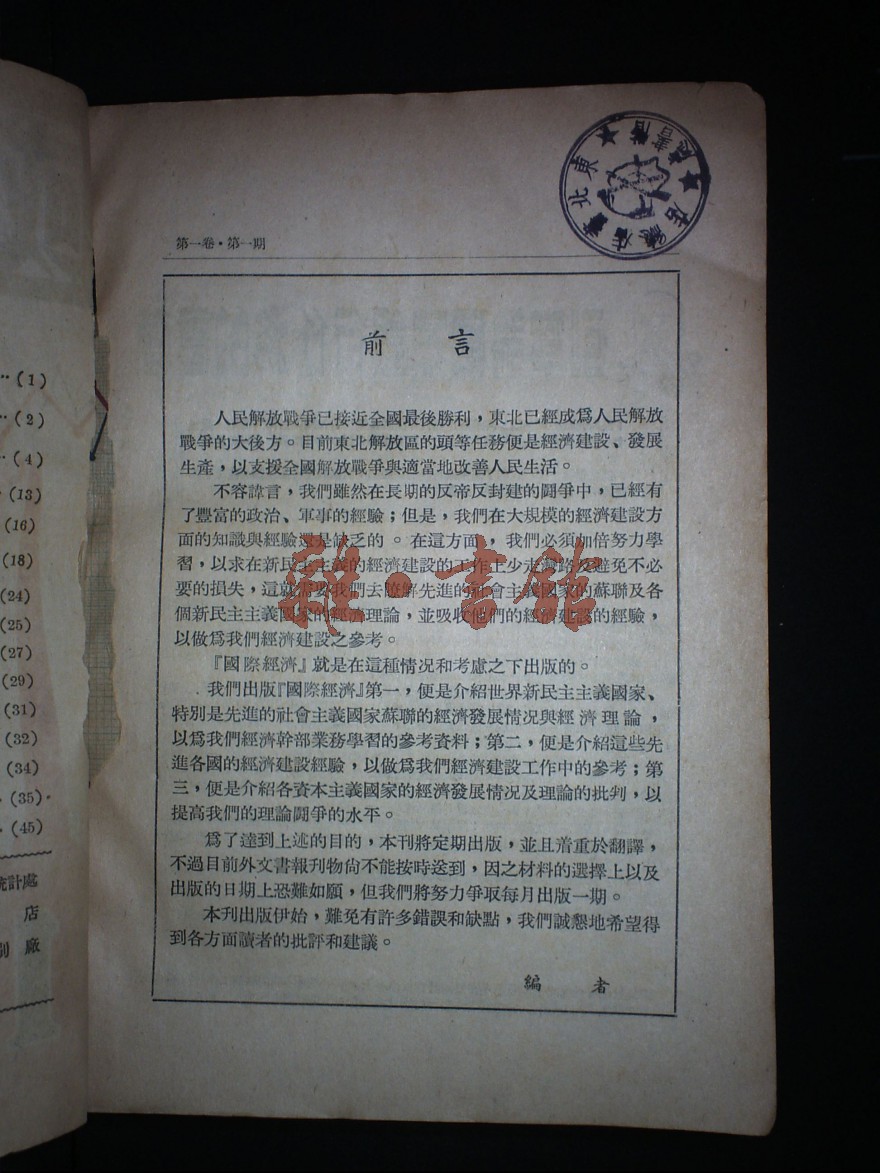 第一卷·第一期
前言
人民解放戰爭已接近全國最後勝利，東北已經成爲人民解放
戰爭的大後方。目前東北解放區的頭等任務便是經濟建設、發展
生產，以支援全國解放戰爭與適當地改善人民生活。
不容諱言，我們雖然在長期的反帝反封建的鬪爭中，已經有
了豐富的政治、軍事的經驗；但是，我們在大規模的經濟建設方
面的知識與經驗還是缺乏的。在這方面，我們必須加倍努力學
習，以求在新民主主義的經濟建設的工作上少走灣路及避免不必
要的損失，這就需要我們去瞭解先進的社會主義國家的蘇聯及各
個新民主主義國家的經濟理論，並吸收他們的經濟建設的經驗，
以做爲我們經濟建設之參考。
『國際經濟』就是在這種情况和考慮之下出版的。
我們出版『國際經濟』第一，便是介紹世界新民主主義國家、
特別是先進的社會主義國家蘇聯的經濟發展情况與經濟理論，
以爲我們經濟幹部業務學習的參考資料；第二，便是介紹這些先
進各國的經濟建設經驗，以做爲我們經濟建設工作中的參考；第
三，便是介紹各資本主義國家的經濟發展情况及理論的批判，以
提高我們的理論鬪爭的水平。
爲了達到上述的目的，本刊將定期出版，並且着重於翻譯，
不過目前外文書報刊物尙不能按時送到，因之材料的選擇上以及
出版的日期上恐難如願，但我們將努力爭取每月出版一期。
本刊出版伊始，難免有許多錯誤和缺點，我們誠懇地希望得
到各方面讀者的批評和建議。
編者
東北書店總店
雜·書館
(1)
(2)
(4)
(13)
(16)
(18)
(24)
(25)
(27)
(29)
(31)
(32)
(34)
(35)
(45)
統計處
店
廠